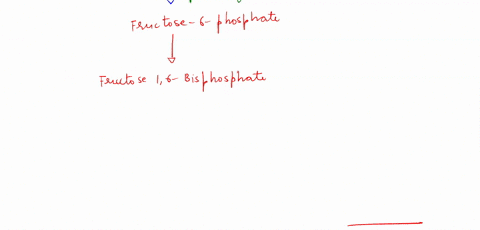 Fructose-6-phosphate
Fructose 1,6-Bisphosphate